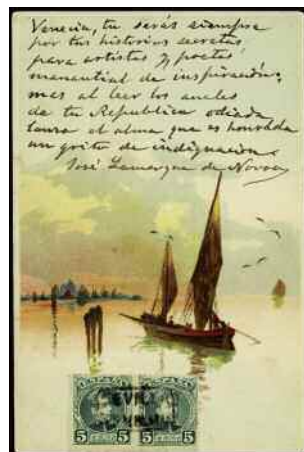 Venecia, tu serás siempre
por tus historias secretas
para artistas y poetas
manantial de inspiración;
mas al leer los anales
de tu Republica odiada
lanza el alma que es honrada
un grito de indignacion.
José Lamarque de Novoa
5 CENT. 5 5 CENT. 5